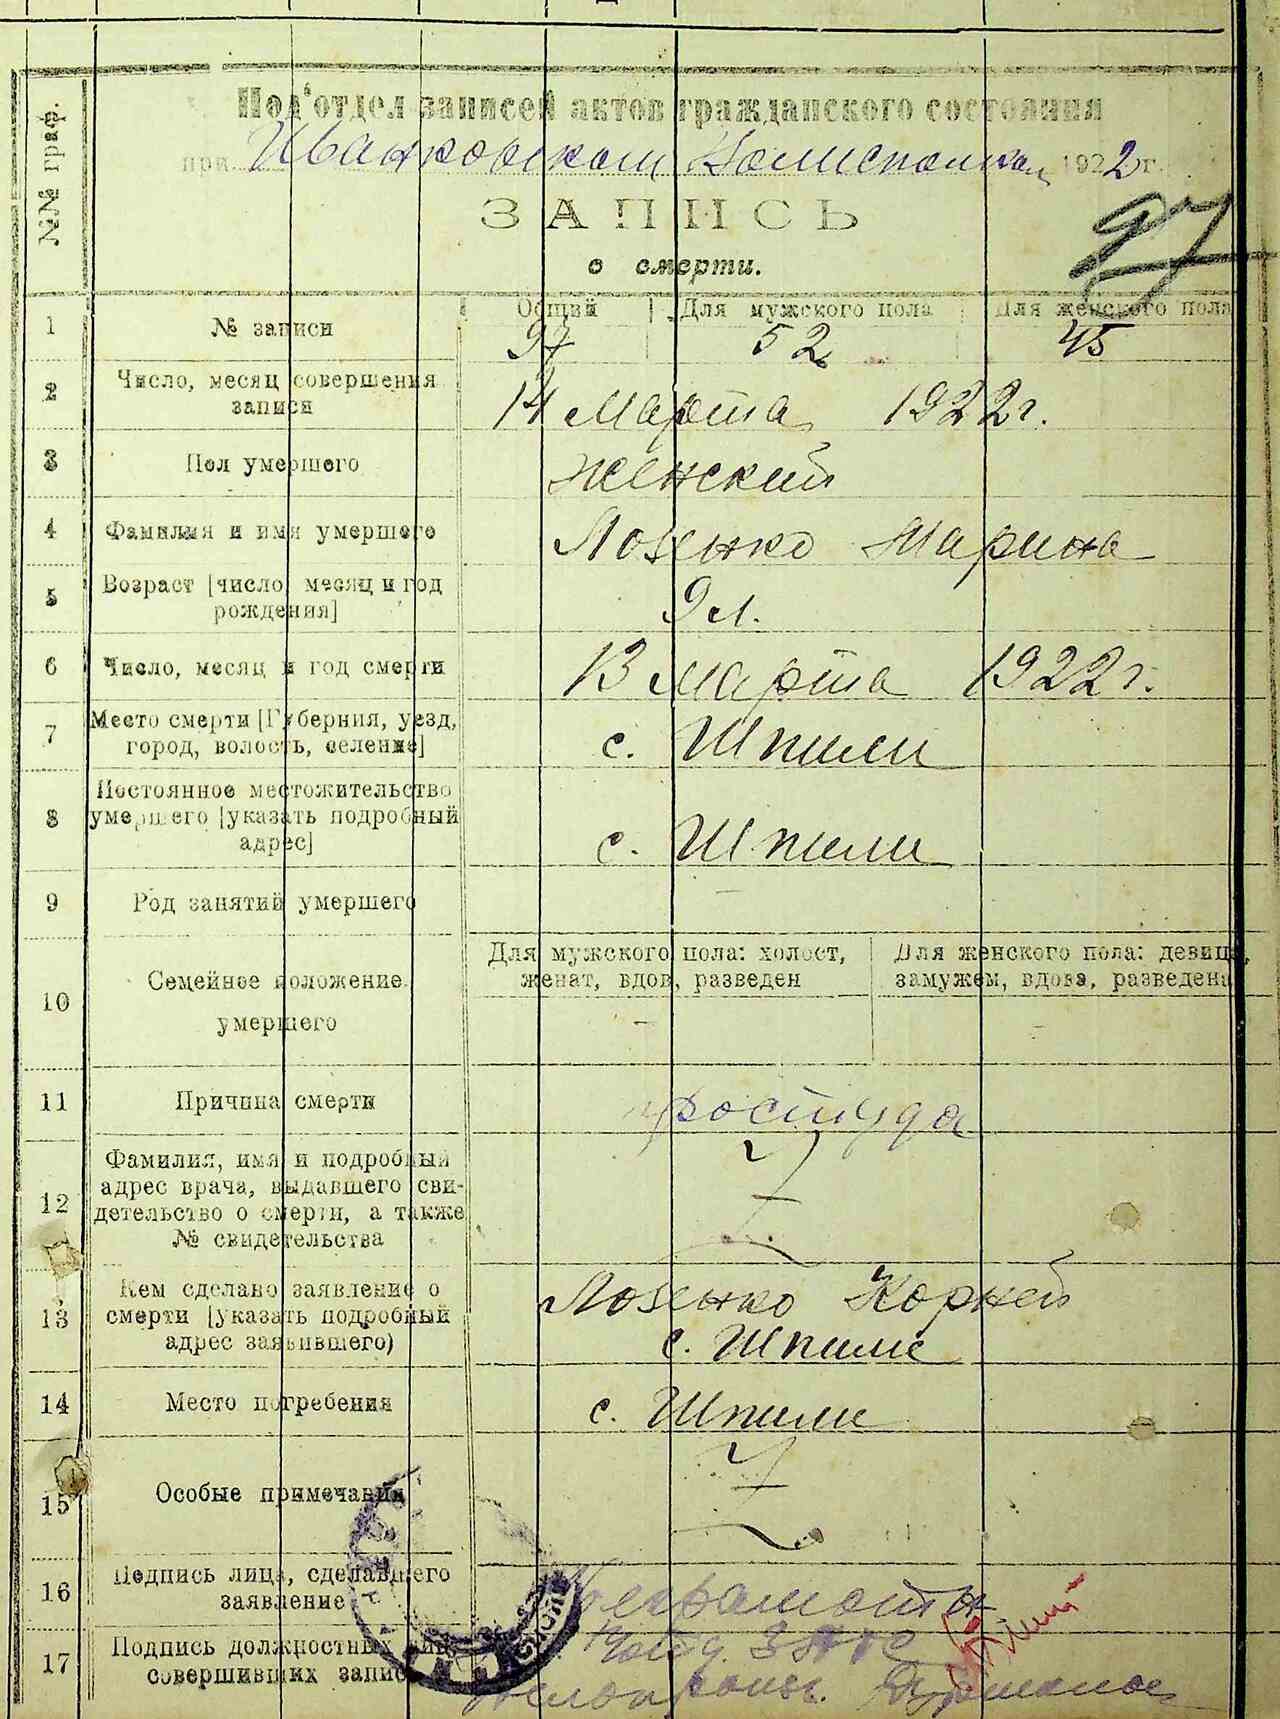 №№ граф.
Под'отдел записей актов гражданского состояния
при Иванковском Волисполкоме 1922 г.
97
ЗАПИСЬ
о смерти.
1 № записи Общий Для мужского пола Для женского пола
97 52 45
2 Число, месяц совершения
записи 14 Марта 1922 г.
3 Пол умершего Женский
4 Фамилия и имя умершего Лозенко Марина
5 Возраст [число, месяц и год
рождения] 9 л.
6 Число, месяц и год смерти 13 Марта 1922 г.
7 Место смерти [Губерния, уезд,
город, волость, селение] с. Шпили
8 Постоянное местожительство
умершего [указать подробный
адрес] с. Шпили
9 Род занятий умершего
10 Семейное положение
умершего
Для мужского пола: холост,
женат, вдов, разведен
Для женского пола: девица,
замужем, вдова, разведена
11 Причина смерти простуда
12 Фамилия, имя и подробный
адрес врача, выдавшего сви-
детельство о смерти, а также
№ свидетельства
13 Кем сделано заявление о
смерти [указать подробный
адрес заявившего) Лозенко Корней
с. Шпили
14 Место погребения с. Шпили
15 Особые примечания
16 Подпись лица, сделавшего
заявление Неграмотн
17 Подпись должностных лиц,
совершивших запись